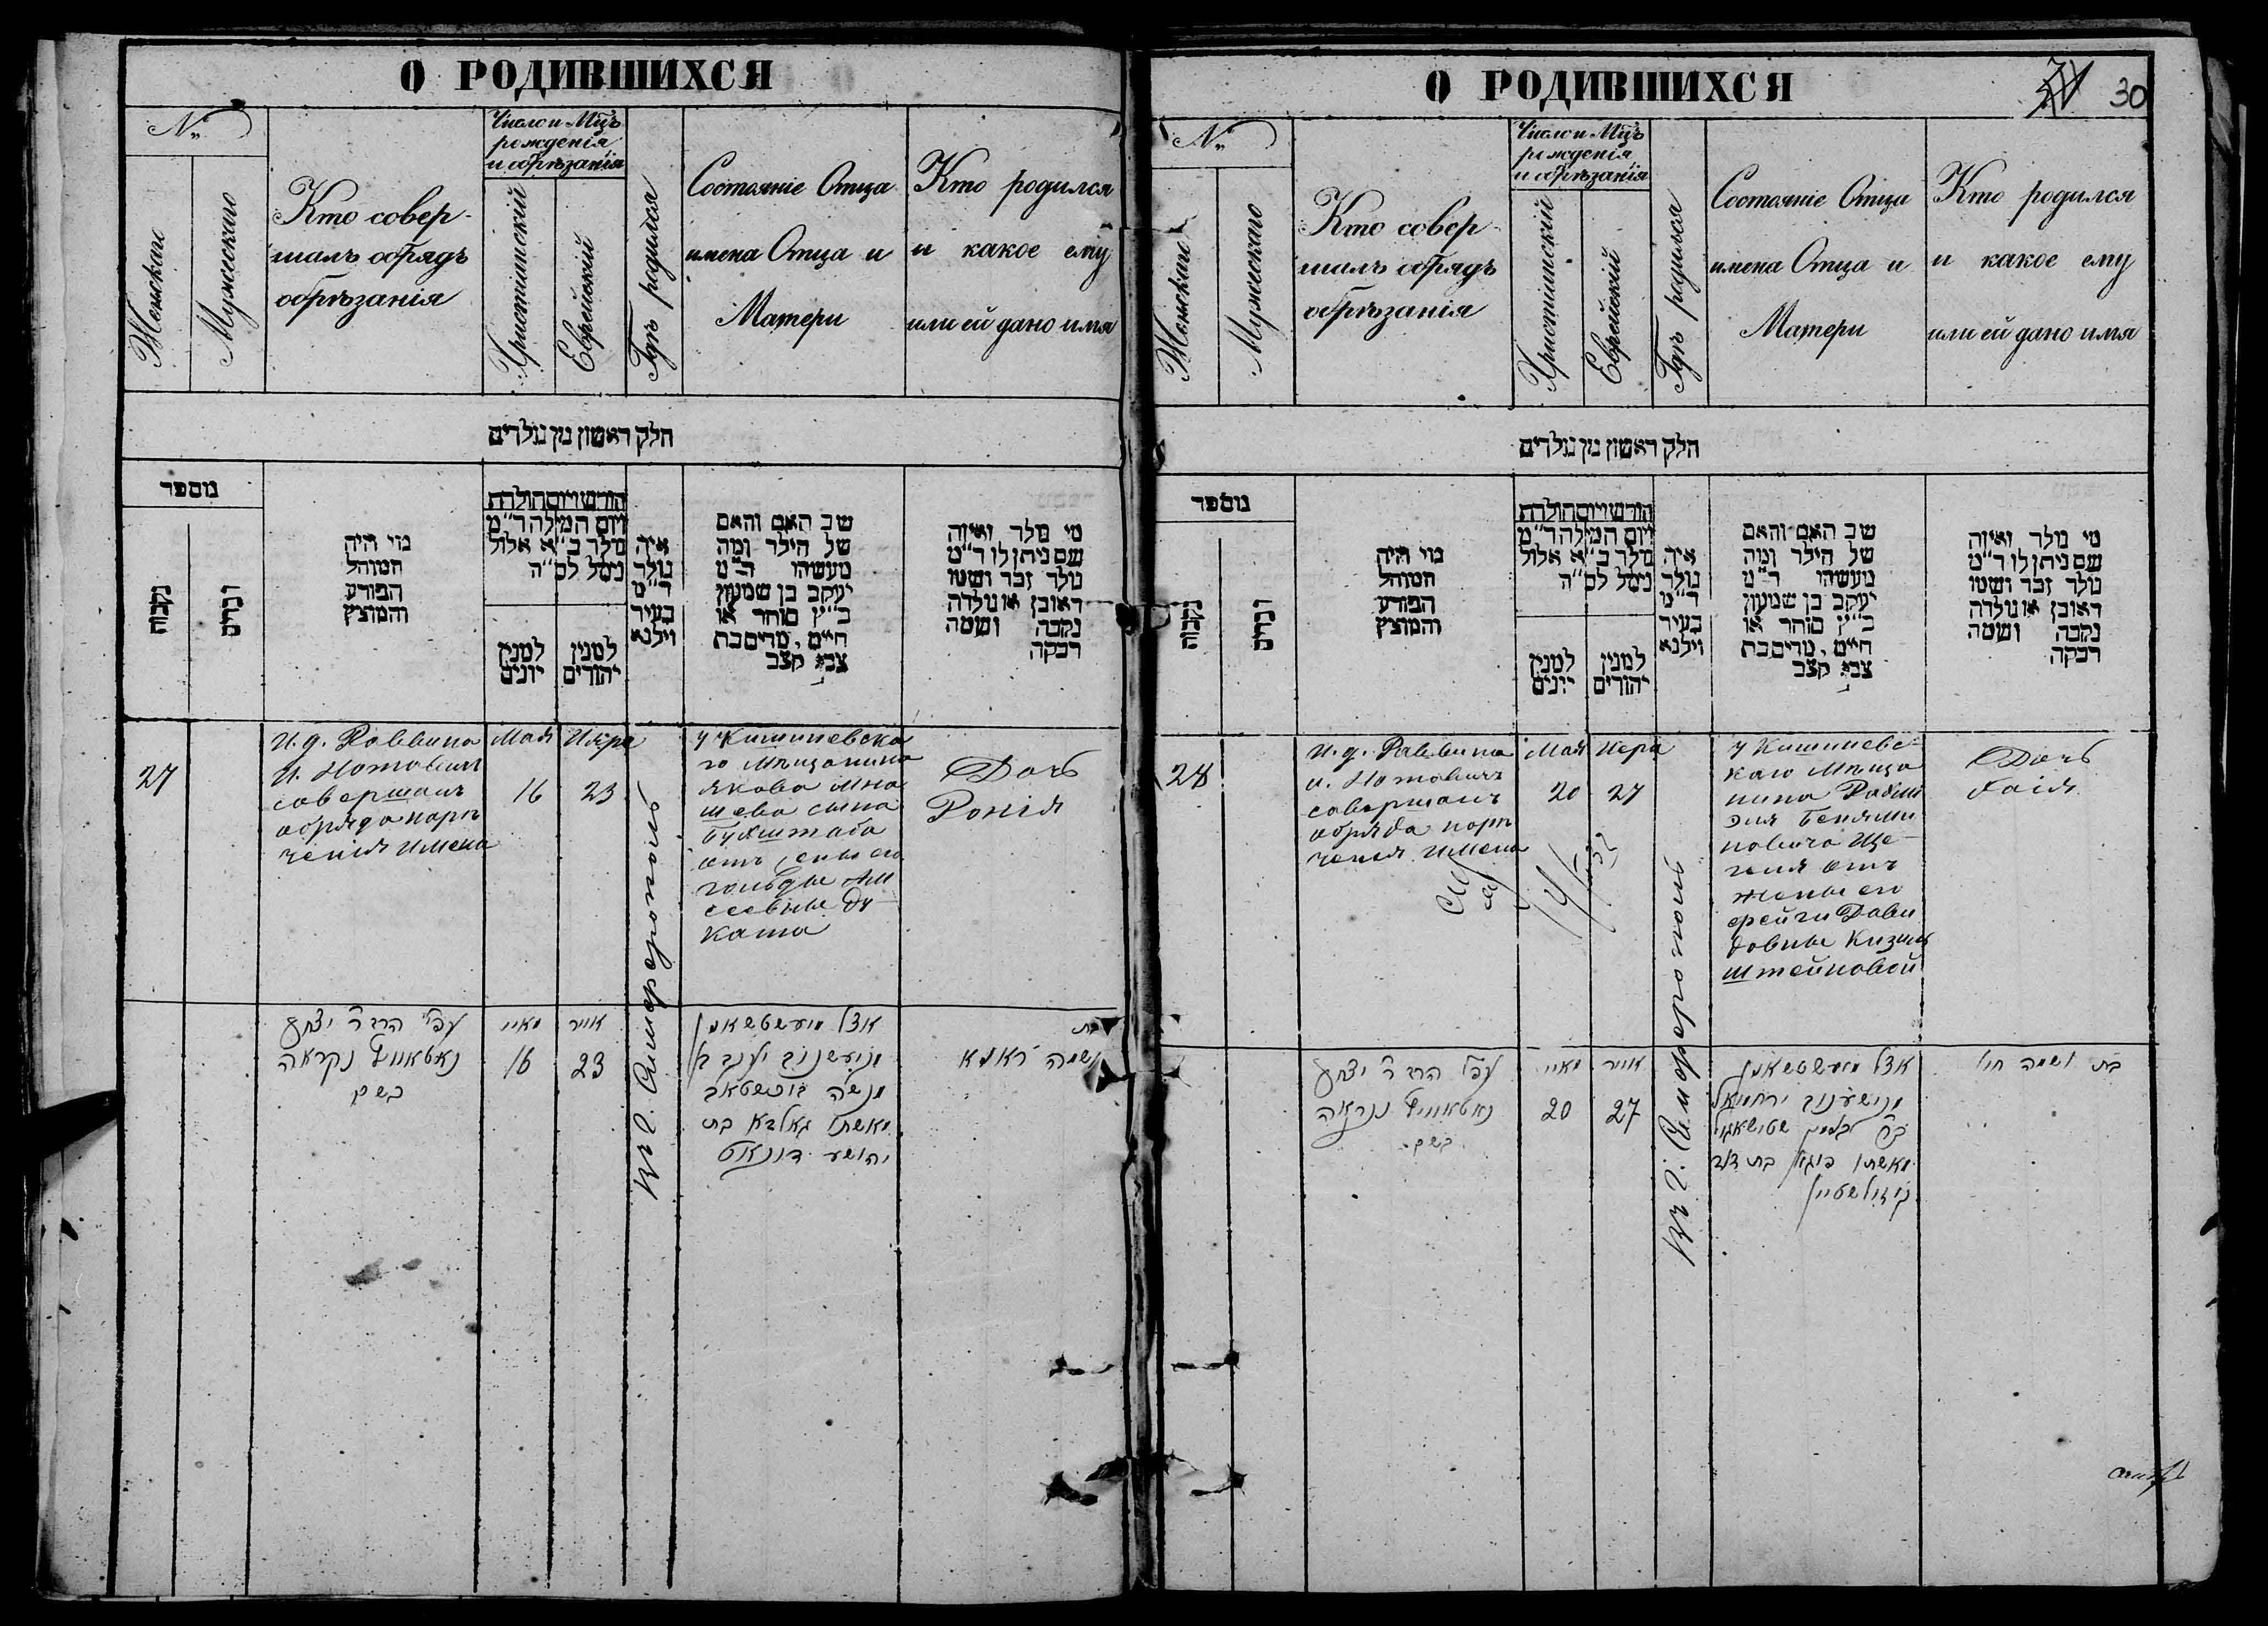 О РОДИВШИХСЯ
№
Женскаго
Мужескаго
Кто совер-
шалъ обрядъ
обрѣзанія
Число и Мцъ
рожденія
и обрѣзанія
Христіанскій
Еврейскій
Гдѣ родился
Состояніе Отца
имена Отца и
Матери
Кто родился
и какое ему
или ей дано имя
חלק ראשון מן נולדים
מספר
נקבות
זכרים
מי היה
המוהל
הפורע
והמוצץ
חודש ויום הולדת
ויום המילה ד״מ
נולד ב״א אלול
נימל לס״ה
למנין
יונים
למנין
יהודים
איה
נולד
ד״מ
בעיר
וילנא
שב האם והאם
של הילד ומה
מעשיהו ד״מ
יעקב בן שמעון
כ״ץ סוחר או
חייט, מרים בת
צבי קצב
מי נולד ואיזה
שם ניתן לו ד״מ
נולד זכר ושמו
ראובן או נולדה
נקבה ושמה
רבקה
27
И. д. Раввина
И. Нотовичъ
совершалъ
обряда нарѣ
ченія имена
Мая
16
Ияра
23
Въ г. Симферополѣ
у Кишиневска
го Мѣщанина
Якова Мна
шева сына
Бухштаба
отъ жены его
Гольды
Ду
ката
Дочь
Ронія
עפ״י הרב ר׳ יצחק
נאטאוויץ נקראה
בשם
מאיי
16
אייר
23
אצל מיעשטשאנין
קישענוב יעקב בן
מנשה בוכשטאב
מאשתו גאלדא בת
יהושע דוקאט
בת
ושמה ראניא
О РОДИВШИХСЯ
30
№
Женскаго
Мужескаго
Кто совер-
шалъ обрядъ
обрѣзанія
Число и Мцъ
рожденія
и обрѣзанія
Христіанскій
Еврейскій
Гдѣ родился
Состояніе Отца
имена Отца и
Матери
Кто родился
и какое ему
или ей дано имя
חלק ראשון מן נולדים
מספר
נקבות
זכרים
מי היה
המוהל
הפורע
והמוצץ
חודש ויום הולדת
ויום המילה ד״מ
נולד ב״א אלול
נימל לס״ה
למנין
יונים
למנין
יהודים
איה
נולד
ד״מ
בעיר
וילנא
שב האם והאם
של הילד ומה
מעשיהו ד״מ
יעקב בן שמעון
כ״ץ סוחר או
חייט, מרים בת
צבי קצב
מי נולד ואיזה
שם ניתן לו ד״מ
נולד זכר ושמו
ראובן או נולדה
נקבה ושמה
רבקה
28
И. д. Раввина
И. Нотовичъ
совершалъ
обряда нарѣ
ченія имена
Мая
20
Иера
27
Въ г. Симферополѣ
у Кишиневс-
каго Мѣща
нина
Бенями
новича Ще-
голя отъ
жены его
Фейги Дави
довны Кизиль
штейновой
Дочь
Хаія
עפ״י הרב ר׳ יצחק
נאטאוויץ נקראה
בשם
מאיי
20
אייר
27
אצל מיעשטשאנין
קישענוב ירחמיאל
מאשתו פיגא בת דוד
קיזילשטיין
בת ושמה חיי